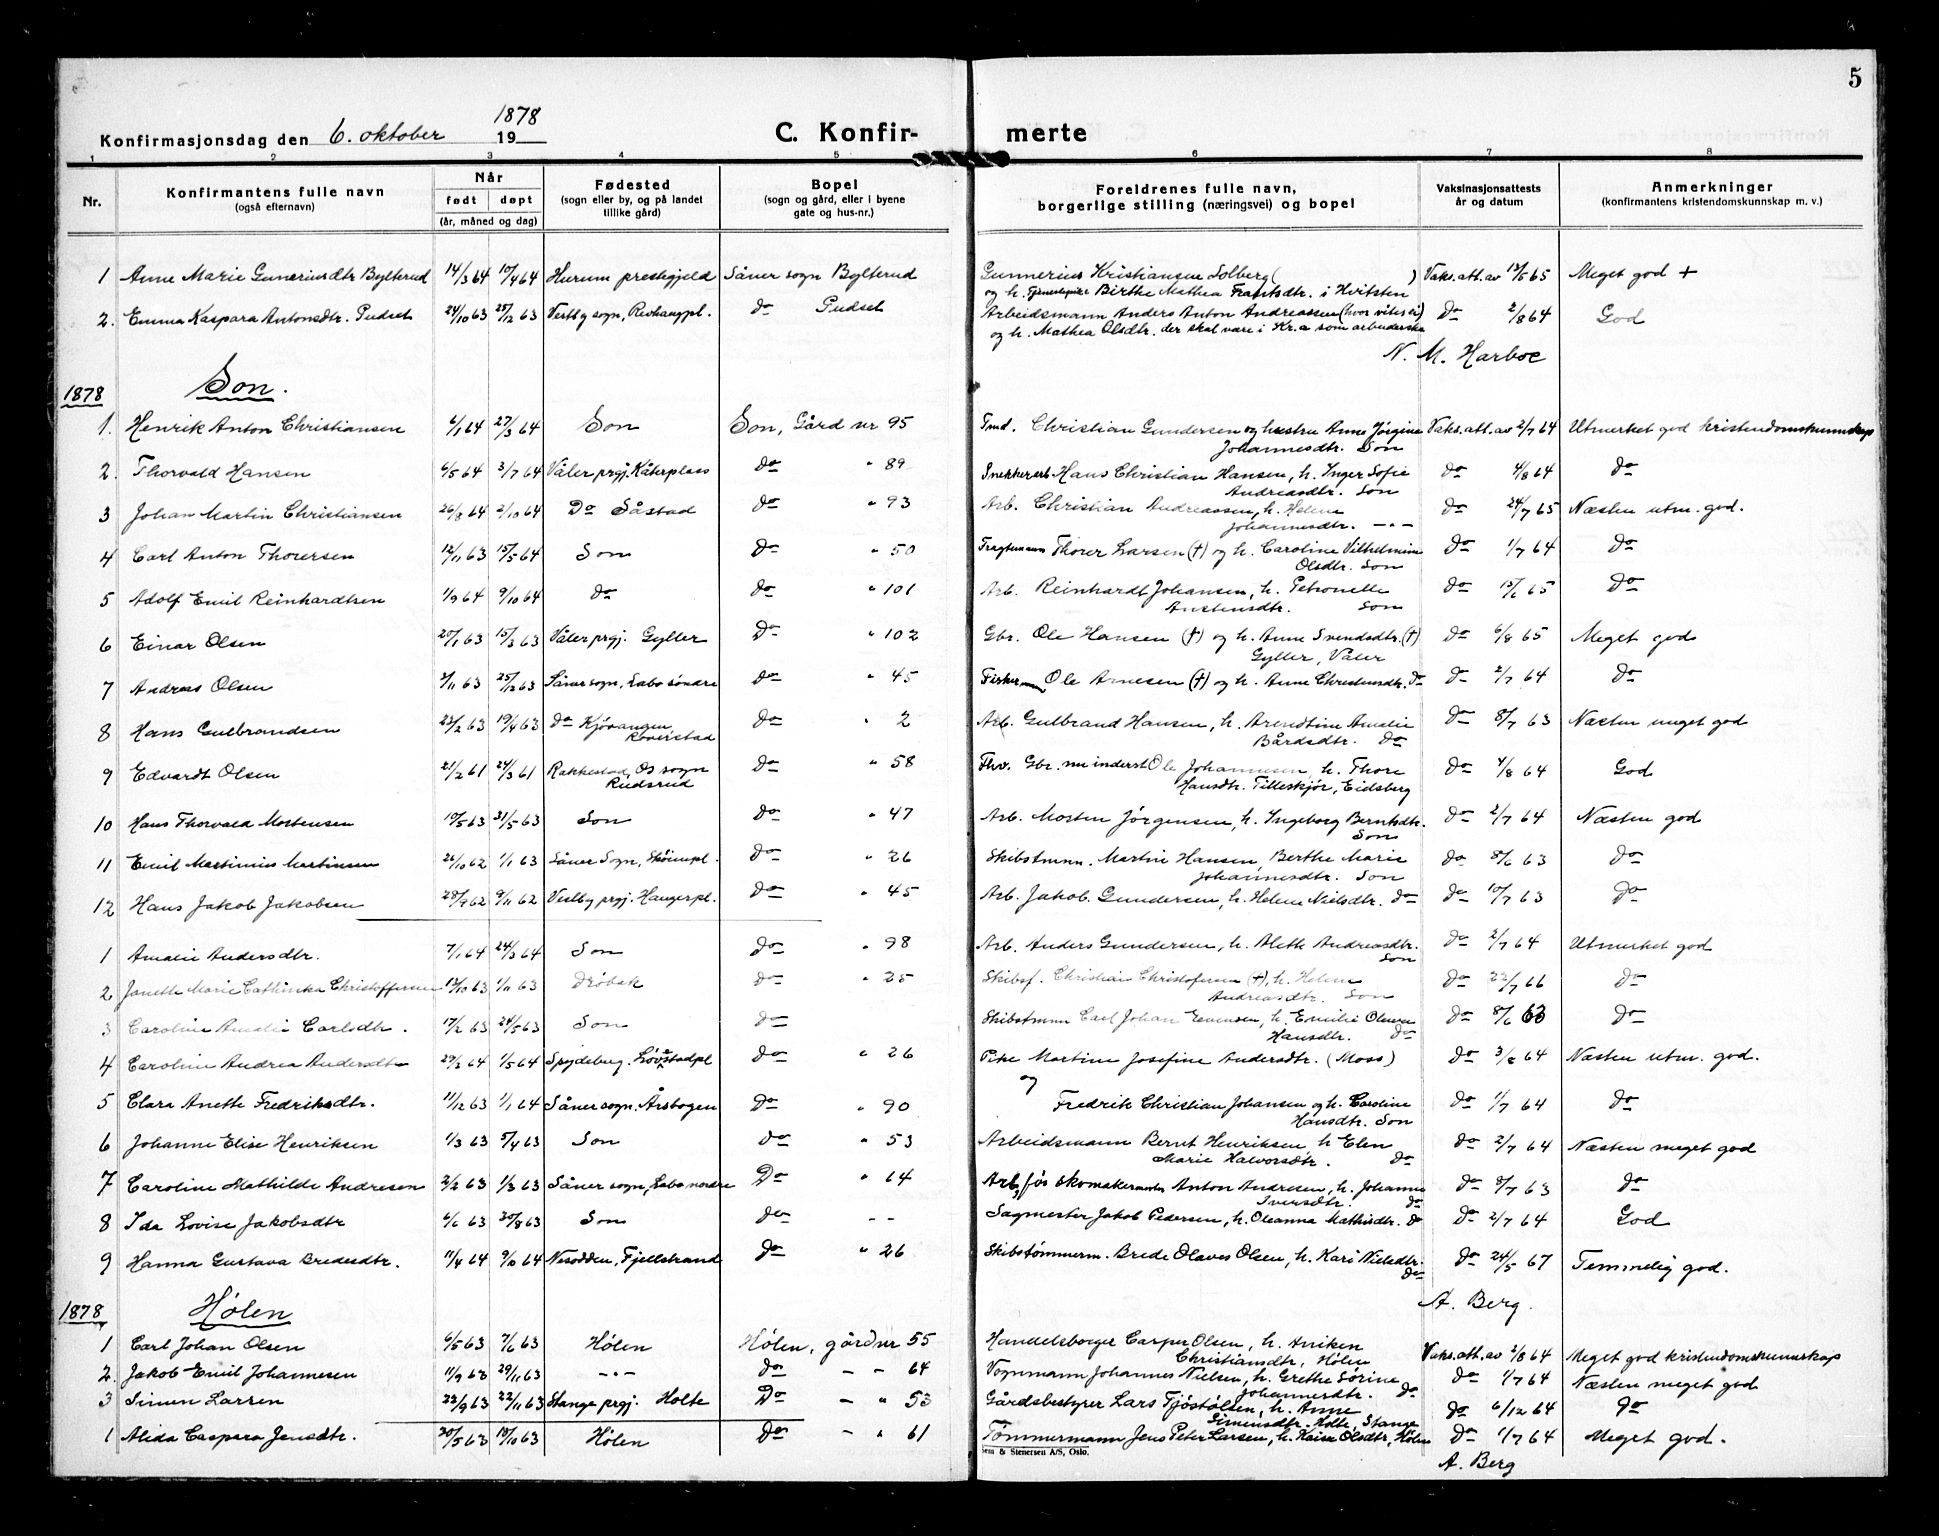 5
Konfirmasjonsdag den 6. oktober 1878 19
C. Konfir- merte
1 2 3 4 5 6 7 8
Nr. Konfirmantens fulle navn (også efternavn) Når født døpt (år, måned og dag) Fødested (sogn eller by, og på landet tillike gård) Bopel (sogn og gård, eller i byene gate og hus-nr.) Foreldrenes fulle navn, borgerlige stilling (næringsvei) og bopel Vaksinasjonsattests år og datum Anmerkninger (konfirmantens kristendomskunnskap m. v.)
1 Anne Marie Guneriusdtr Bylterud 14/3 64 10/4 64 Hurum prestegjeld Såner sogn Bylterud Gunnerius Kristiansen Solberg ( ) Vaks.att. av 13/5 65 Meget god +
og h. Birthe Mathea Frantsdtr. i Hvitsten
2. Emma Kaspara Antonsdtr. Pudset 24/10 63 25/12 63 Vestby sogn, Revhaugpl. do Pudset Arbeidsmann Anders Anton Andreassen (hvor vites ei) do 2/8 64 God
og h. Mathea Olsdtr. der skal være i Kr.a som arbeiderske
N. M. Harboe
1878 Son.
1. Henrik Anton Christiansen 6/1 64 27/3 64 Son Son, Gård nr 95 Tmd. Christian Gundersen og hustru Anne Jørgine Vaks.att. av 2/7 64 Utmerket god kristendomskunnskap
Johannesdtr. Son
2. Thorvald Hansen 6/5 64 3/7 64 Våler prgj. Kåterplass do " 89 Snekkerarb. Hans Christian Hansen, h. Inger Sofie do 4/8 64 do
Andreasdtr. Son
3 Johan Martin Christiansen 26/8 64 2/10 64 Do Såstad do " 93 Arb. Christian Andreassen, h. Helene do 24/7 65 Næsten utm. god.
Johannesdtr. -"-
4 Carl Anton Thorersen 12/11 63 15/5 64 Son do " 50 Fragtemann Thorer Larsen (†) og h. Caroline Vilhelmine do 1/7 64 do
Olsdtr. Son
5 Adolf Emil Reinhardtsen 1/9 64 9/10 64 do do " 101 Arb. Reinhardt Johansen, h. Petronelle do 15/6 65 do
Anstensdtr. Son
6 Einar Olsen 20/1 63 15/3 63 Våler prgj. Gyller Do " 102 Gbr. Ole Hansen (†) og h. Anne Svendsdtr. (†) do 6/8 65 Meget god
Gyller, Våler
7 Andreas Olsen 2/11 63 25/12 63 Såner sogn, Labo søndre do " 45 Ole Arnesen (†) og h. Anne Christensdtr. do do 2/7 64 do
8 Hans Gulbrandsen 23/2 63 19/4 63 do Kjøvangen do " 2 Arb. Gulbrand Hansen, h. Arendtine Amalie do 8/7 63 Næsten meget god
Bårdsdtr. do
9 Edvardt Olsen 21/2 61 24/3 61 Rakkestad, Os sogn do " 58 Fhv. Gbr. nu inderst Ole Johannesen, h. Thore do 4/8 64 God
Rudsrud Hansdtr. Tilleskjør, Eidsberg
10 Hans Thorvald Mortensen 10/5 63 31/5 63 Son do " 47 Arb. Morten Jørgensen, h. Ingeborg Berntsdtr. do 2/7 64 Næsten god
Son
11 Emil Martinius Martinsen 26/10 62 1/1 63 Såner Sogn, Skøienpl. do " 26 Skibstmm. Martin Hansen, Berthe Marie do 8/6 63 do
Johannesdtr. Son
12 Hans Jakob Jakobsen 28/9 62 9/11 62 Vestby prgj. Haugerpl. do " 45 Arb. Jakob Gundersen, h. Helene Nielsdtr. do do 10/7 63 do
1 Amalie Andersdtr. 7/1 64 24/3 64 Son do " 98 Arb. Anders Gundersen, h. Aleth Andreasdtr. do 2/7 64 Utmerket god
Son
2 Janette Marie Cathinka Christoffersen 13/10 63 1/11 63 Drøbak do " 25 Skibsf. Christian Christofersen (†), h. Helene do 22/7 66 do
Andreasdtr. Son
3 Caroline Amalie Carlsdtr. 17/2 63 24/5 63 Son do Skibstmm Carl Johan Evensen, h. Emilie Oleane do 8/6 63 do
Hansdtr. do
4 Caroline Andrea Andersdtr 29/2 64 1/5 64 Spydeberg. Løvestadpl do " 26 Pike Martine Josefine Andersdtr. (Moss) do 3/8 64 Næsten utm. god.
og
5 Clara Anette Fredriksdtr. 11/12 63 1/1 64 Såner sogn. Årsbogen do " 90 Fredrik Christian Johansen og h. Caroline do 1/7 64 do
Hansdtr. Son
6 Johanne Elise Henriksen 1/3 63 5/4 63 Son do " 53 Arbeidsmann Bernt Henriksen, h Elen do 2/7 64 Næsten meget god
Marie Halvorsdtr. do
7 Caroline Mathilde Andresen 2/2 63 1/3 63 Såner sogn, Labo nordre Do " 14 Arb, før skomakermester Anton Andresen, h. Johanne do 8/7 63 do
Iversdtr. do
8 Ida Lovise Jakobsdtr 6/6 63 30/8 63 Son do - - Sagmester Jakob Pedersen, h. Oleanna Mathisdtr. do do 2/7 64 God
9 Hanna Gustava Bredesdtr. 11/4 64 9/10 64 Nesodden, Fjellstrand do " 26 Skibstømmerm. Brede Olaves Olsen, h. Kari Nielsdtr. do 24/5 67 Temmelig god.
do
A. Berg.
1878 Hølen
1 Carl Johan Olsen 6/5 63 7/6 63 Hølen Hølen, gård nr 55 Handelsborger Casper Olsen, h. Aniken Vaks.att. av 2/8 64 Meget god kristendomskunnskap
Christiansdtr, Hølen
2. Jakob Emil Johannesen 11/9 63 29/11 63 -"- do - - 64 Vognmann Johannes Nielsen, h. Grethe Sørine do 1/7 64 Næsten meget god
Johannesdtr. do
3 Simen Larsen 22/9 63 22/11 63 Stange prgj. Holte Do - " 53 Gårdsbestyrer Lars Fjøstølsen, h. Anne do 6/12 64 do
Simensdtr. Holte, Stange
1 Alida Caspara Jensdtr. 20/5 63 18/10 63 Hølen Do - " 61 Tømmermann Jens Peter Larsen, h. Kaisa Olsdtr, Hølen do 1/7 64 Meget god.
Sem & Stenersen A/S, Oslo.
A. Berg